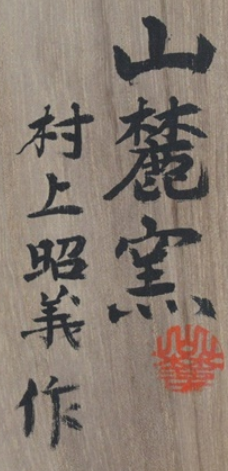 山麓窯
村上昭義作